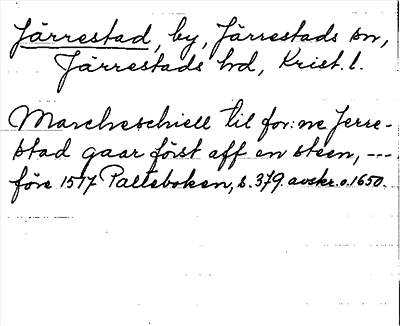 Järrestad, by, Järrestads sn,
Järrestads hd, Krist. l.
Marcheschiell til for:ne Jerre-
stad gaar först aff en steen, ---
före 1517 Palteboken, s. 379. avskr. o. 1650.